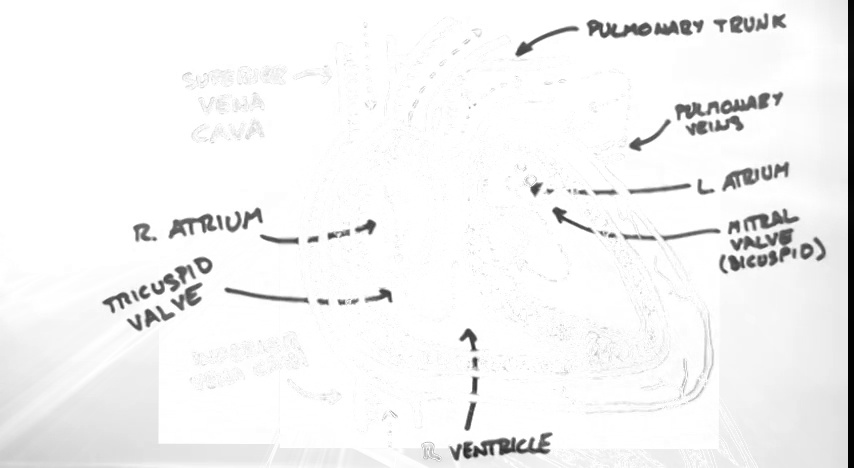 PULMONARY TRUNK
SUPERIOR
VENA
CAVA
PULMONARY
VEINS
L. ATRIUM
R. ATRIUM
MITRAL
VALVE
(BICUSPID)
TRICUSPID
VALVE
INFERIOR
VENA CAVA
R. VENTRICLE